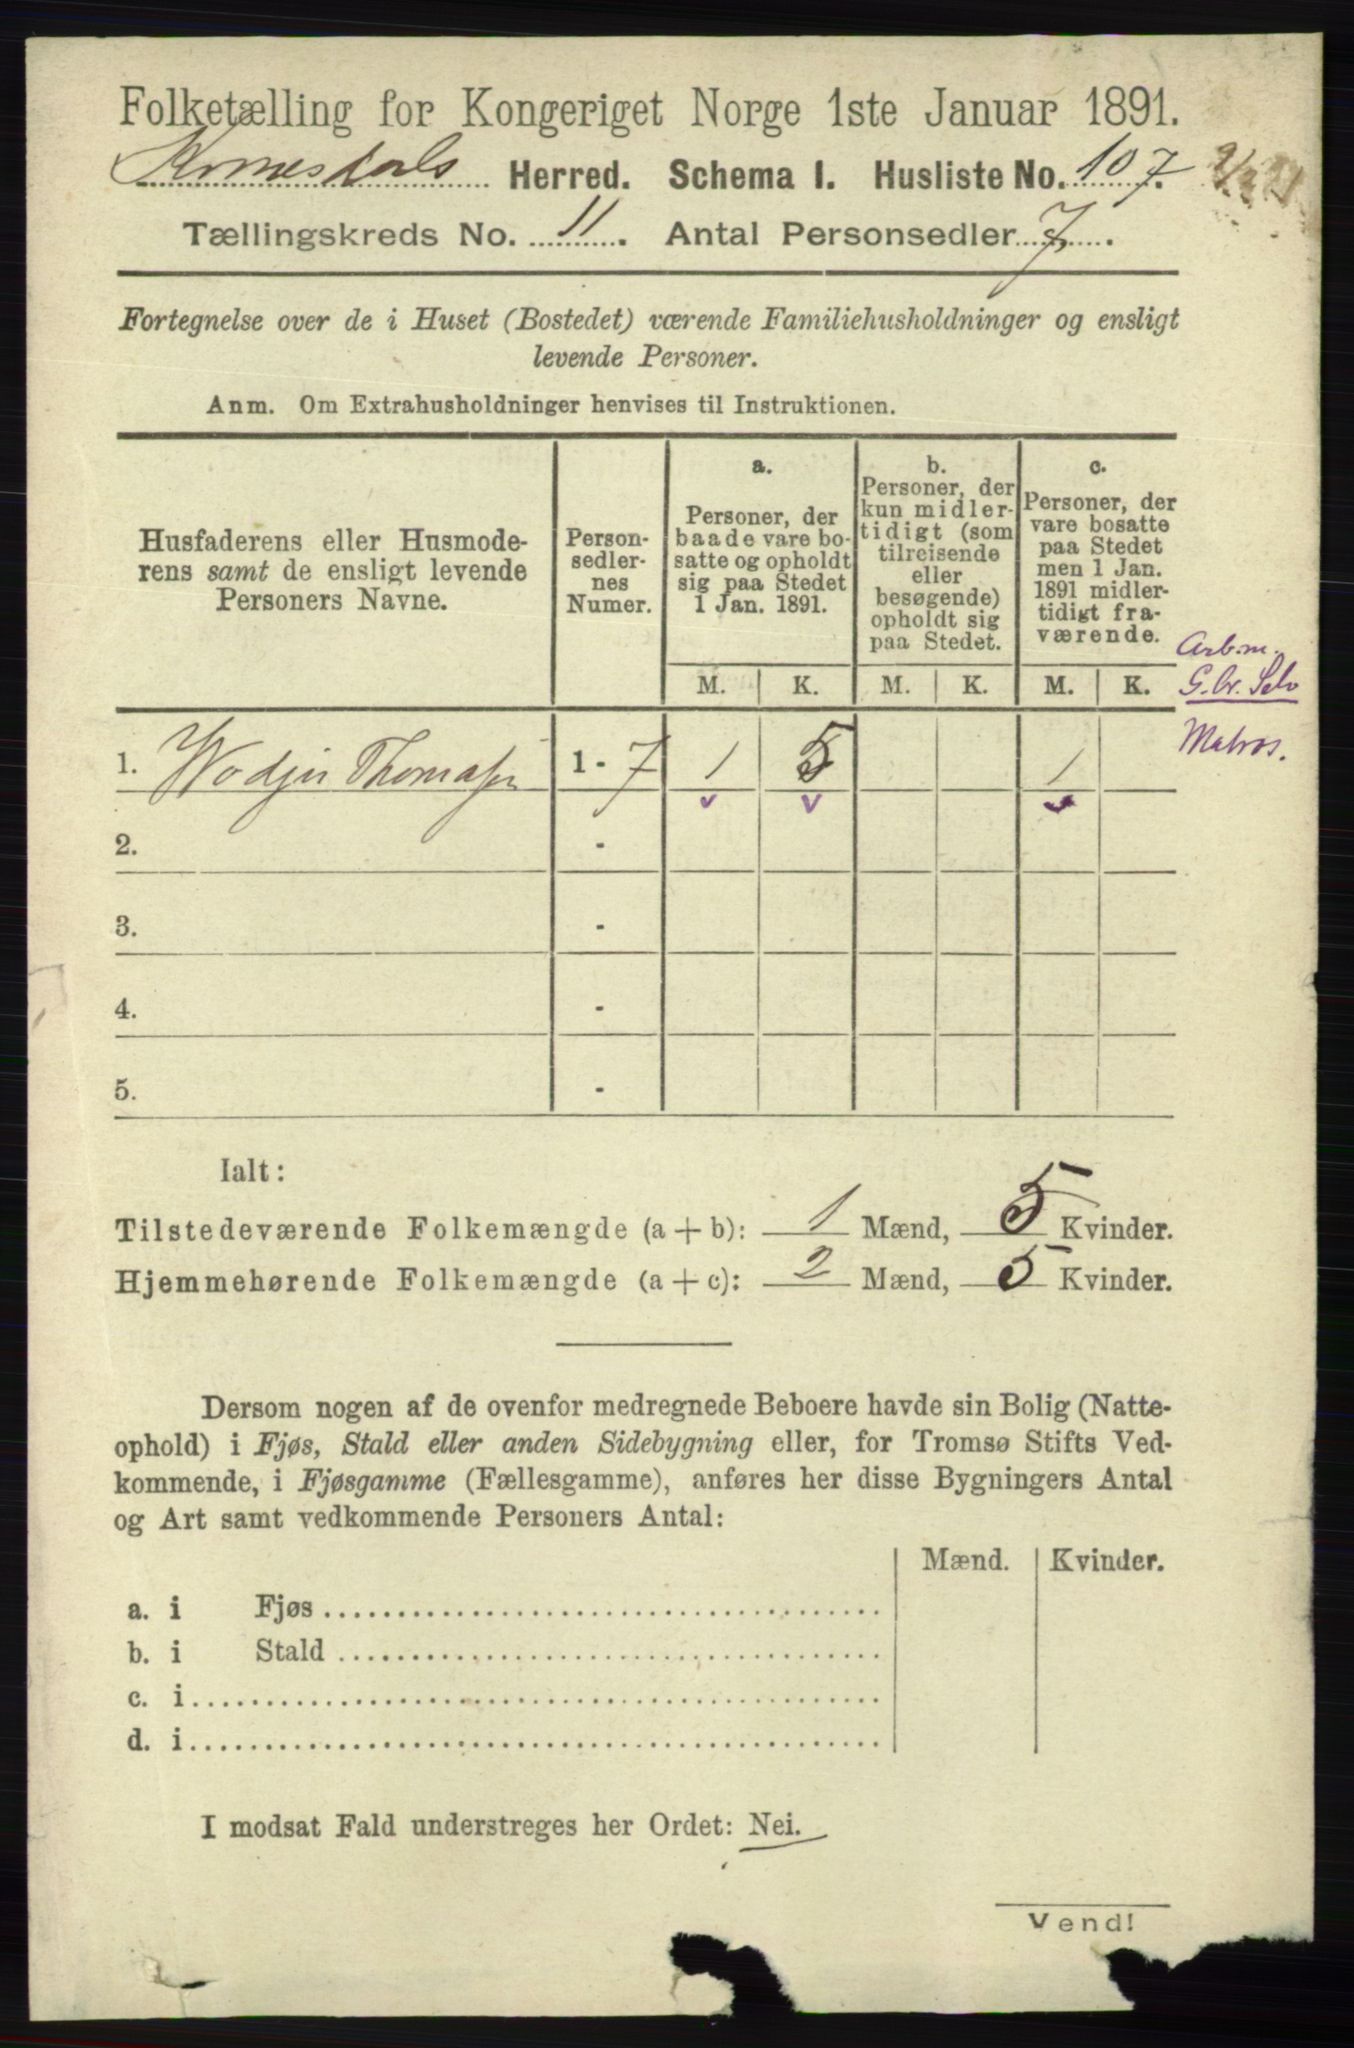 Folketælling for Kongeriget Norge 1ste Januar 1891.
Herred. Schema I. Husliste No. 107.
Tællingskreds No. 11. Antal Personsedler 7.
Fortegnelse over de i Huset (Bostedet) værende Familiehusholdninger og ensligt
levende Personer.
Anm. Om Extrahusholdninger henvises til Instruktionen.
Husfaderens eller Husmode-
rens samt de ensligt levende
Personers Navne.
Person-
sedler-
nes
Numer.
a.
Personer, der
baade vare bo-
satte og opholdt
sig paa Stedet
1 Jan. 1891.
b.
Personer, der
kun midler-
tidigt (som
tilreisende
eller
besøgende)
opholdt sig
paa Stedet.
c.
Personer, der
vare bosatte
paa Stedet
men 1 Jan.
1891 midler-
tidigt fra-
værende.
Arb.m.
G.br. Selv
M. K. M. K. M. K.
Matros.
1. Thomassen 1 - 7 1 5 1
2. -
3. -
4. -
5. -
Ialt:
Tilstedeværende Folkemængde (a + b): 1 Mænd, 5 Kvinder.
Hjemmehørende Folkemængde (a + c): 2 Mænd, 5 Kvinder.
Dersom nogen af de ovenfor medregnede Beboere havde sin Bolig (Natte-
ophold) i Fjøs, Stald eller anden Sidebygning eller, for Tromsø Stifts Ved-
kommende, i Fjøsgamme (Fællesgamme), anføres her disse Bygningers Antal
og Art samt vedkommende Personers Antal:
Mænd. Kvinder.
a. i Fjøs
b. i Stald
c. i
d. i
I modsat Fald understreges her Ordet: Nei.
Vend!